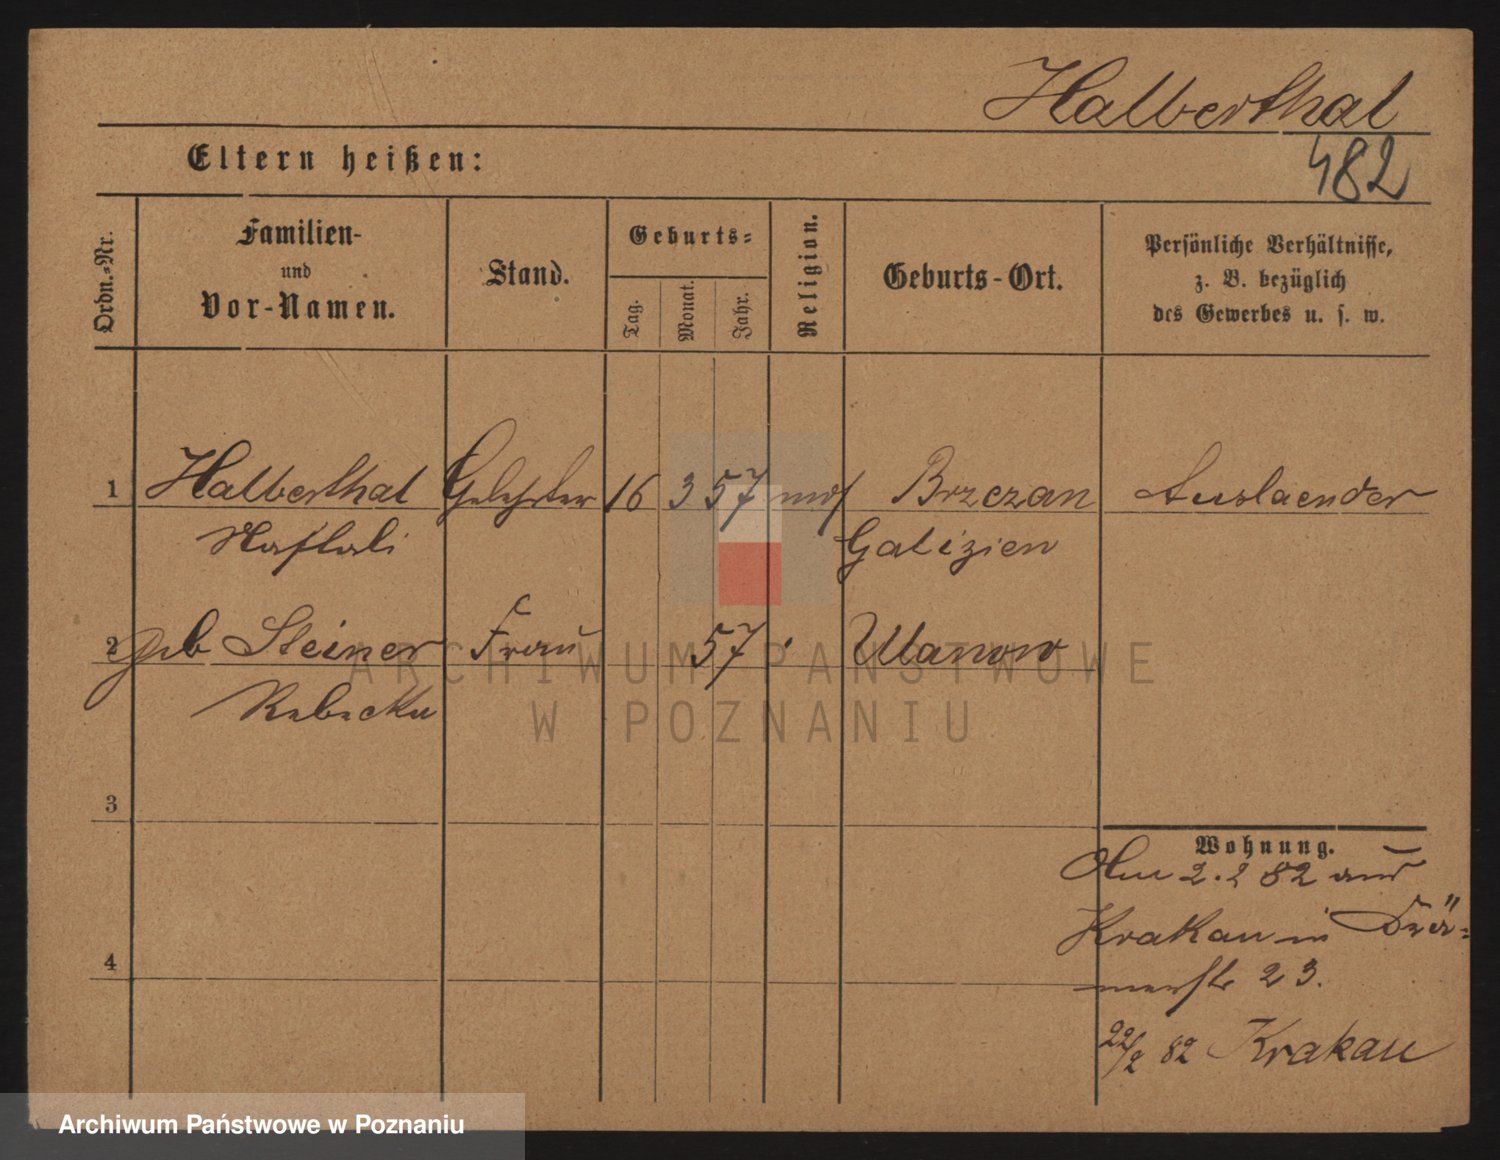 Halberthal
482
Eltern heißen:
Ordn.=Nr.
Familien-
und
Vor-Namen.
Stand.
Geburts=
Tag.
Monat.
Jahr.
Religion.
Geburts-Ort.
Persönliche Verhältnisse,
z. B. bezüglich
des Gewerbes u. s. w.
1 Halberthal Gelehrter 16 3 57 mos Brzezan Auslaender
Naftali Galizien
2 geb Steiner Frau 57 Ulanow
Rebecka
ARCHIWUM PAŃSTWOWE
W POZNANIU
3
Wohnung.
2.2 82 aus
Krakau in
4
23.
22/2 82 Krakau
Archiwum Państwowe w Poznaniu